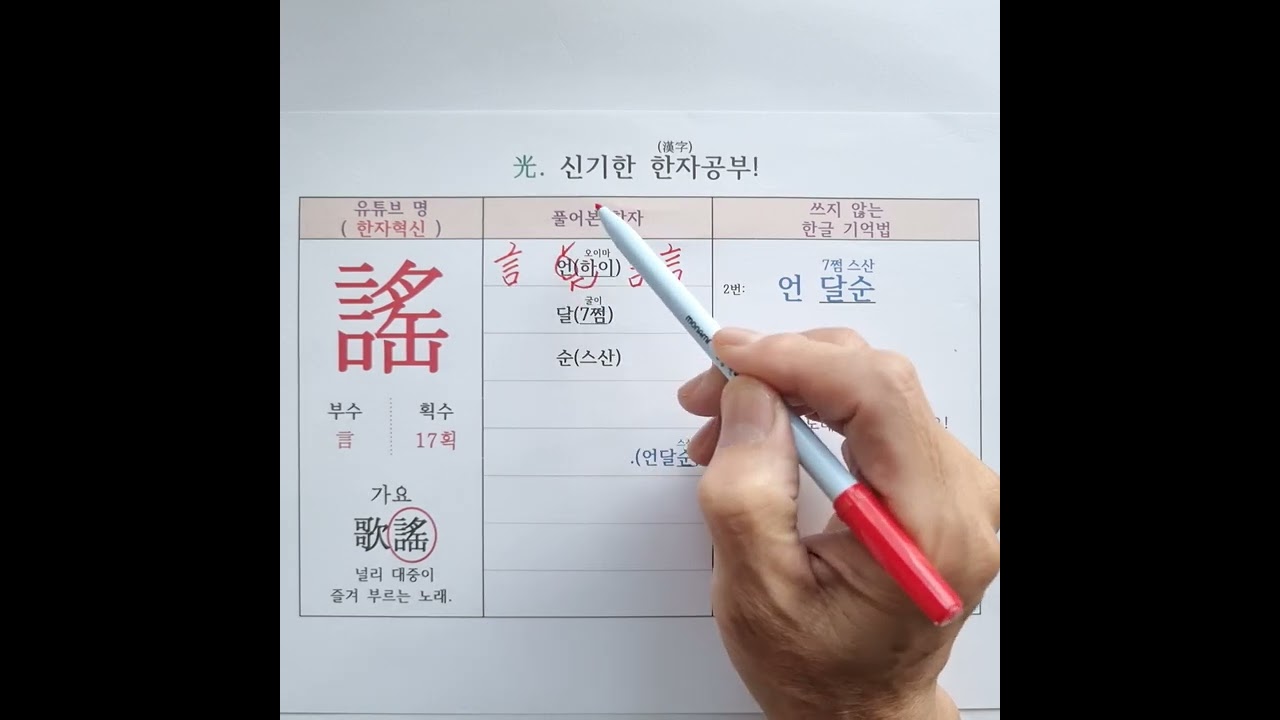 (漢字)
光. 신기한 한자공부!
유튜브 명
( 한자혁신 )
謠
부수 획수
言 17획
가요
歌謠
널리 대중이
즐겨 부르는 노래.
풀어본
오이마
言 언(하이) 言
굴이
달(7쩜)
순(스산)
.(언달순
쓰지 않는
한글 기억법
7쩜 스산
2번: 언 달순
monami